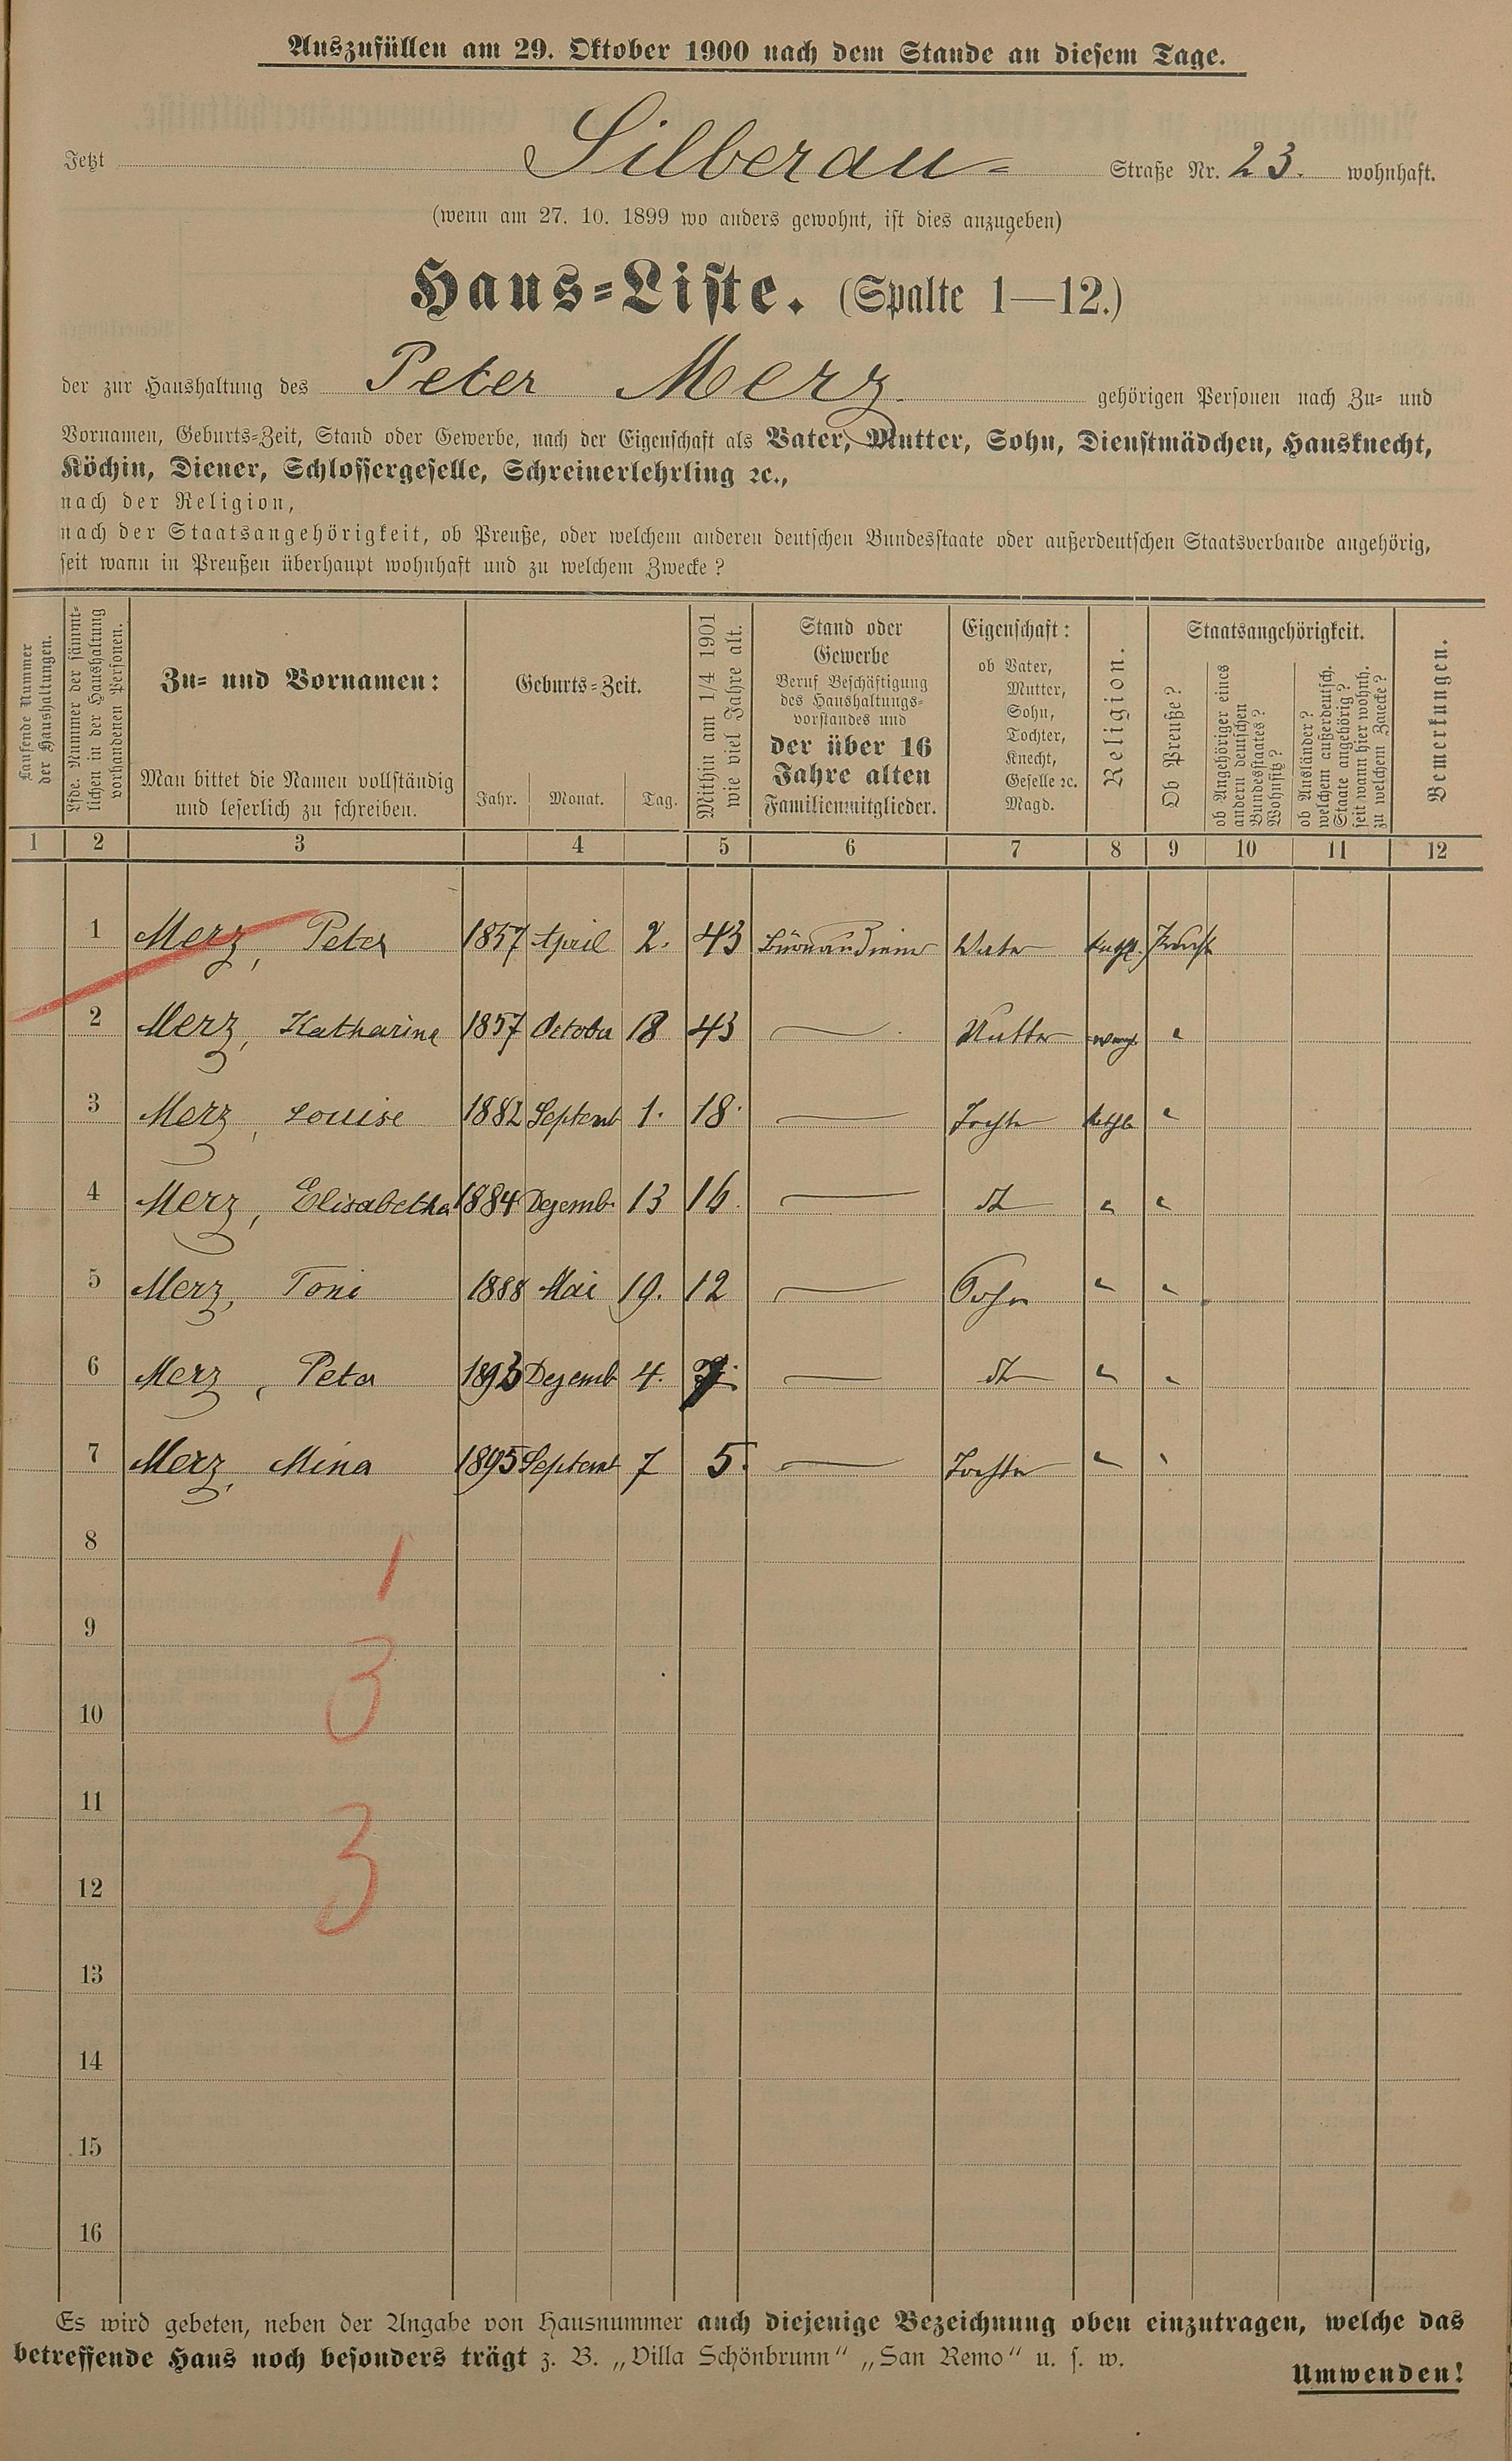 Auszufüllen am 29. Oktober 1900 nach dem Stande an diesem Tage.
Jetzt Silberau- Straße Nr. 23. wohnhaft.
(wenn am 27. 10. 1899 wo anders gewohnt, ist dies anzugeben)
Haus-Liste. (Spalte 1—12.)
der zur Haushaltung des Peter Merz gehörigen Personen nach Zu- und
Vornamen, Geburts-Zeit, Stand oder Gewerbe, nach der Eigenschaft als Vater, Mutter, Sohn, Dienstmädchen, Hausknecht,
Köchin, Diener, Schlossergeselle, Schreinerlehrling ꝛc.,
nach der Religion,
nach der Staatsangehörigkeit, ob Preuße, oder welchem anderen deutschen Bundesstaate oder außerdeutschen Staatsverbande angehörig,
seit wann in Preußen überhaupt wohnhaft und zu welchem Zwecke?
Laufende Nummer
der Haushaltungen.
Lfde. Nummer der sämmt-
lichen in der Haushaltung
vorhandenen Personen.
Zu- und Vornamen:
Man bittet die Namen vollständig
und leserlich zu schreiben.
Geburts-Zeit.
Jahr. Monat. Tag.
Mithin am 1/4 1901
wie viel Jahre alt.
Stand oder
Gewerbe
Beruf Beschäftigung
des Haushaltungs-
vorstandes und
der über 16
Jahre alten
Familienmitglieder.
Eigenschaft:
ob Vater,
Mutter,
Sohn,
Tochter,
Knecht,
Geselle ꝛc.
Magd.
Religion.
Staatsangehörigkeit.
Ob Preuße?
ob Angehöriger eines
andern deutschen
Bundesstaates?
Wohnsitz?
ob Ausländer?
welchem außerdeutsch.
Staate angehörig?
seit wann hier wohnh.
zu welchem Zwecke?
Bemerkungen.
1 2 3 4 5 6 7 8 9 10 11 12
1 Merz, Peter 1857 April 2. 43 Vater
2 Merz, Katharina 1857 October 18 43 — Mutter "
3 Merz, Louise 1882 Septemb 1. 18. — Tochter kathl "
4 Merz, Elisabetha 1884 Dezemb. 13 16. — dto " "
5 Merz, Toni 1888 Mai 19. 12 — Sohn " "
6 Merz, Peter 1893 Dezemb 4. 7. — dto " "
7 Merz, Mina 1895 Septemb 7 5. — Tochter " "
8
1
9
3
10
11
3
12
13
14
15
16
Es wird gebeten, neben der Angabe von Hausnummer auch diejenige Bezeichnung oben einzutragen, welche das
betreffende Haus noch besonders trägt z. B. „Villa Schönbrunn“ „San Remo“ u. s. w.
Umwenden!